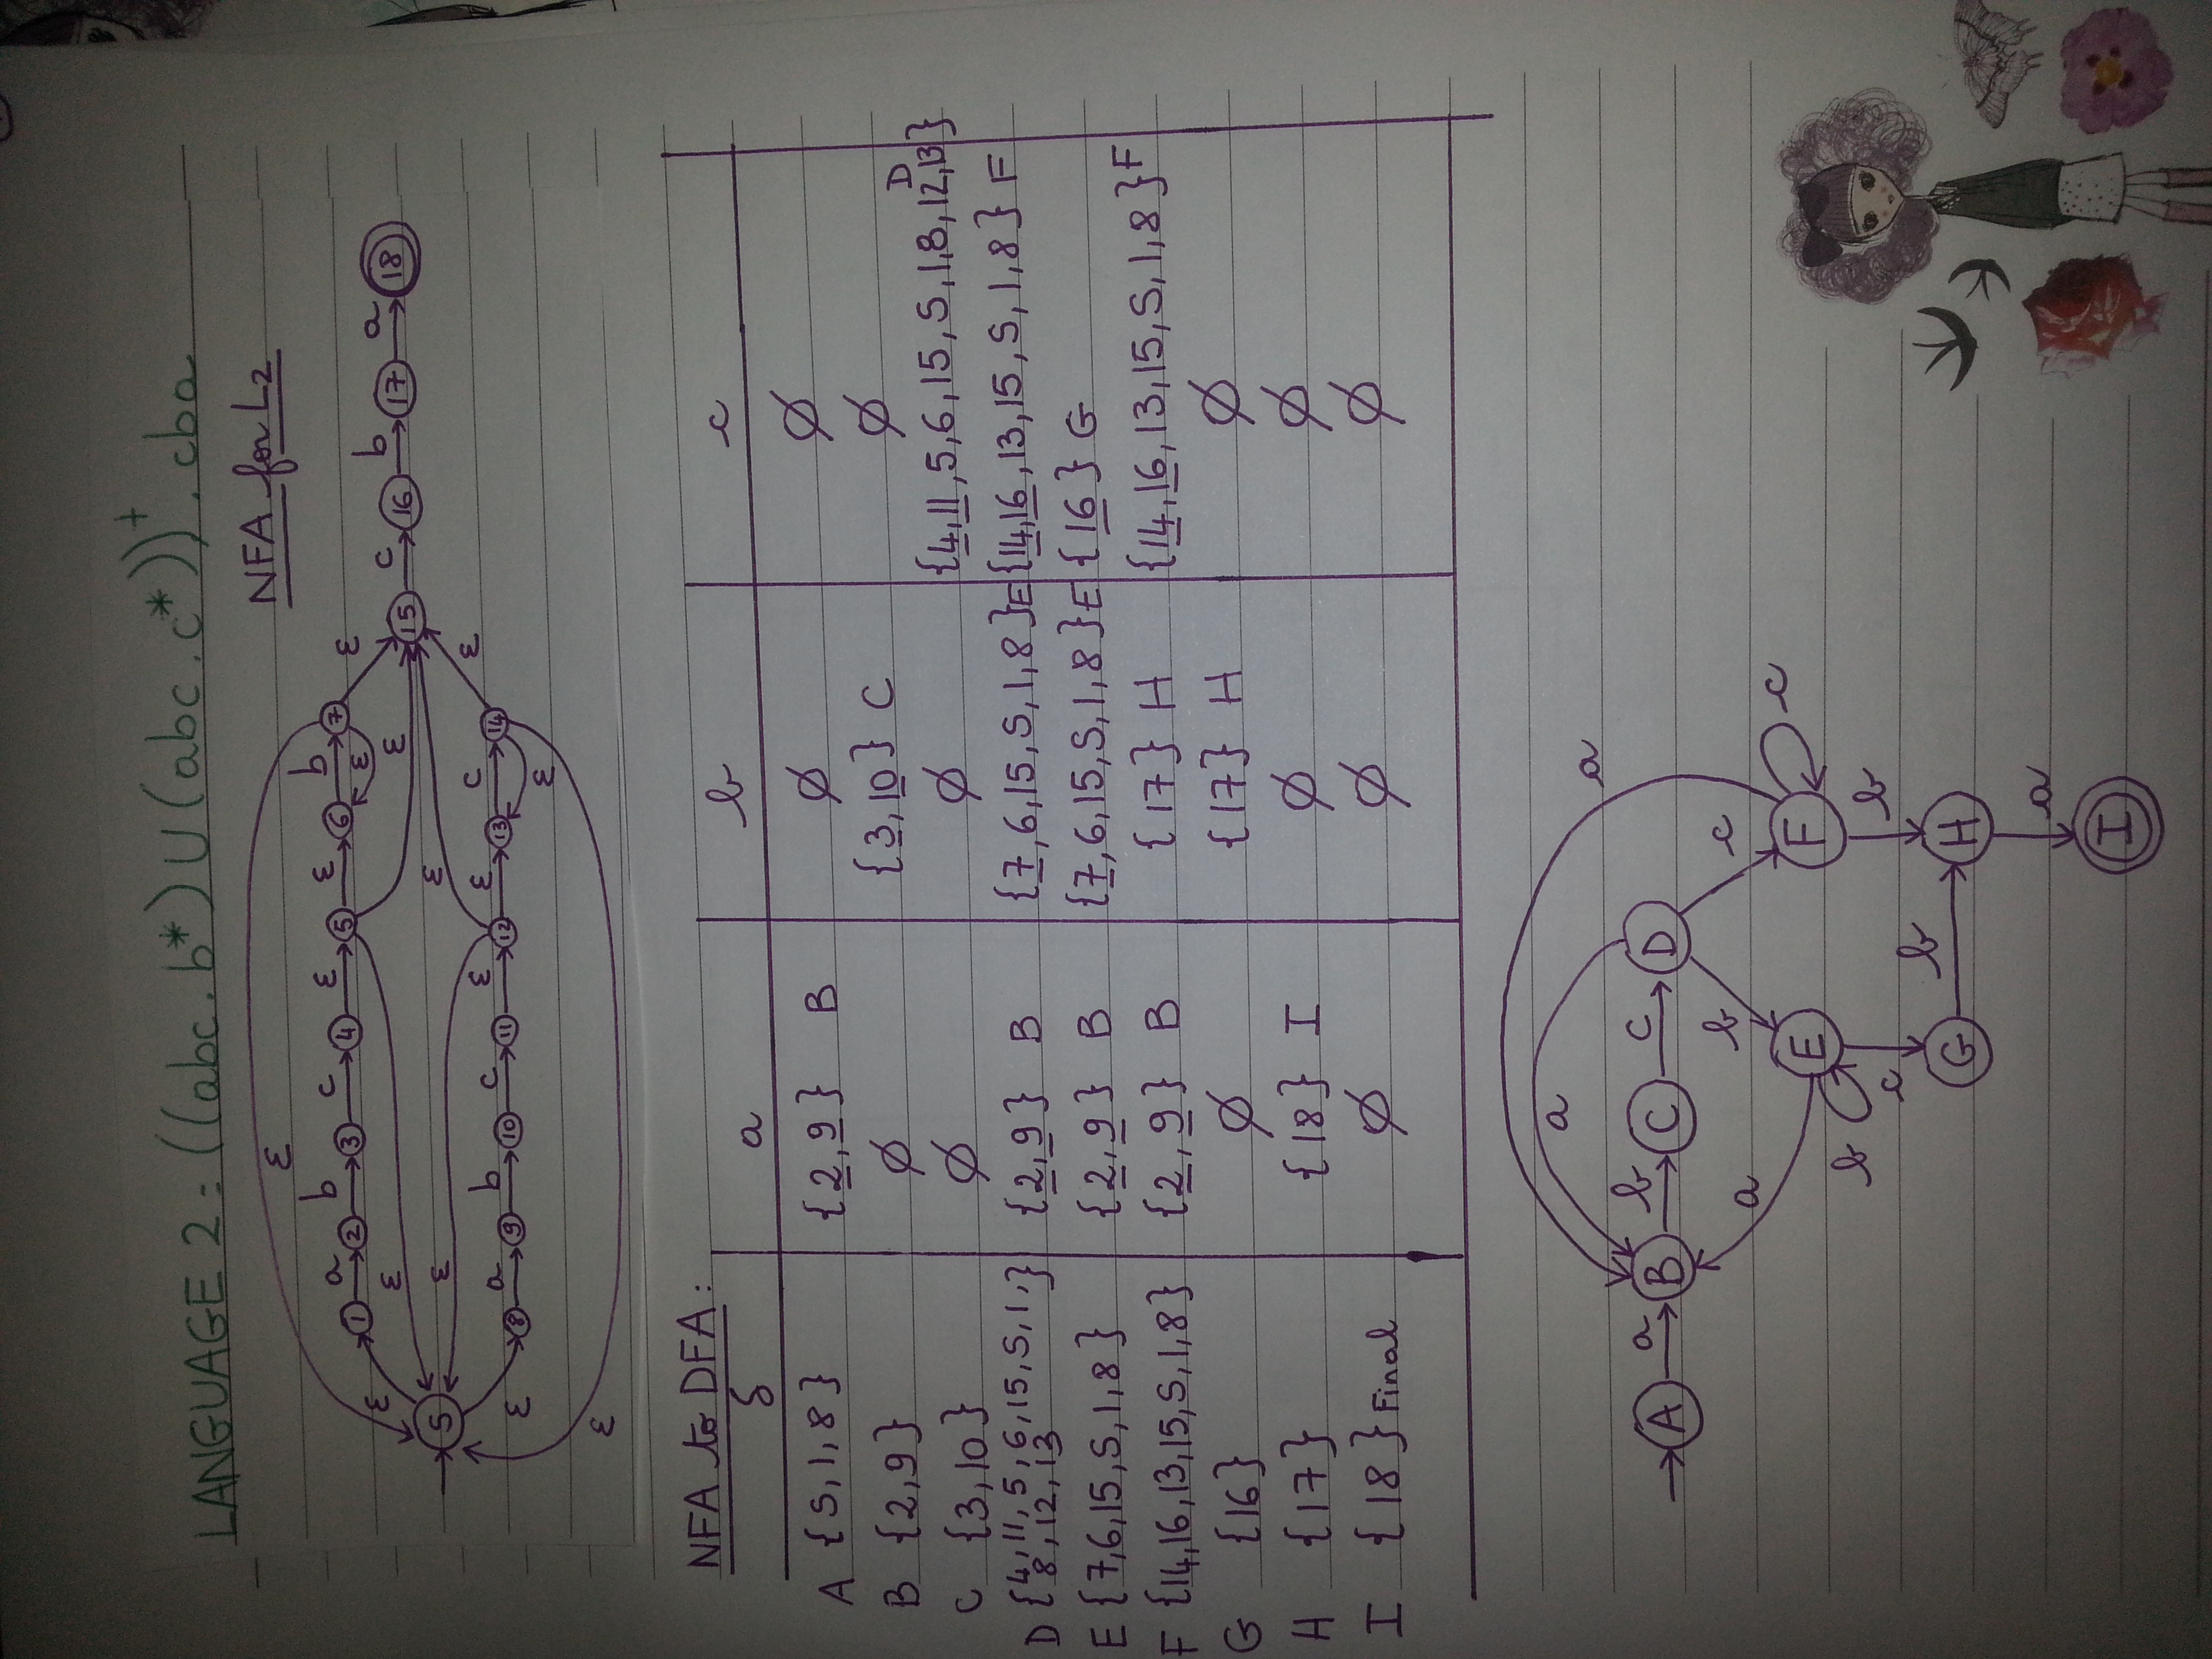 LANGUAGE 2: ((abc.b*) U (abc.c*))⁺.cba
NFA for L2
ε
1 a 2 b 3 c 4 ε 5 ε 6 b 7 ε
ε ε ε ε
S ε 15 c 16 b 17 a 18
ε ε ε
ε 8 a 9 b 10 c 11 ε 12 ε 13 c 14 ε
ε
NFA to DFA:
δ a b c
A {S,1,8} {2,9} B ∅ ∅
B {2,9} ∅ {3,10} C ∅
C {3,10} ∅ ∅ {4,11,5,6,15,S,1,8,12,13} D
D {4,11,5,6,15,S,1, {2,9} B {7,6,15,S,1,8} E {14,16,13,15,S,1,8} F
8,12,13}
E {7,6,15,S,1,8} {2,9} B {7,6,15,S,1,8} E {16} G
F {14,16,13,15,S,1,8} {2,9} B {17} H {14,16,13,15,S,1,8} F
G {16} ∅ {17} H ∅
H {17} {18} I ∅ ∅
I {18} Final ∅ ∅ ∅
a
a
A a B b C c D
a b c
b E F c
c b
G b H
a
I